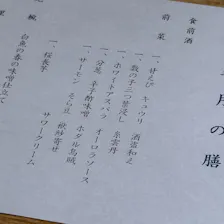 月の膳
食前酒
前菜
一、甘えび キュウリ 酒盗和え
一、数の子三つ葉浸し 糸雲丹
一、ホワイトアスパラ オーロラソース
一、分葱 辛子酢味噌 ホタル烏賊
一、サーモン そら豆 砧妙寄せ
一、桜長芋 サワークリーム
椀
白魚の春の味噌仕立て